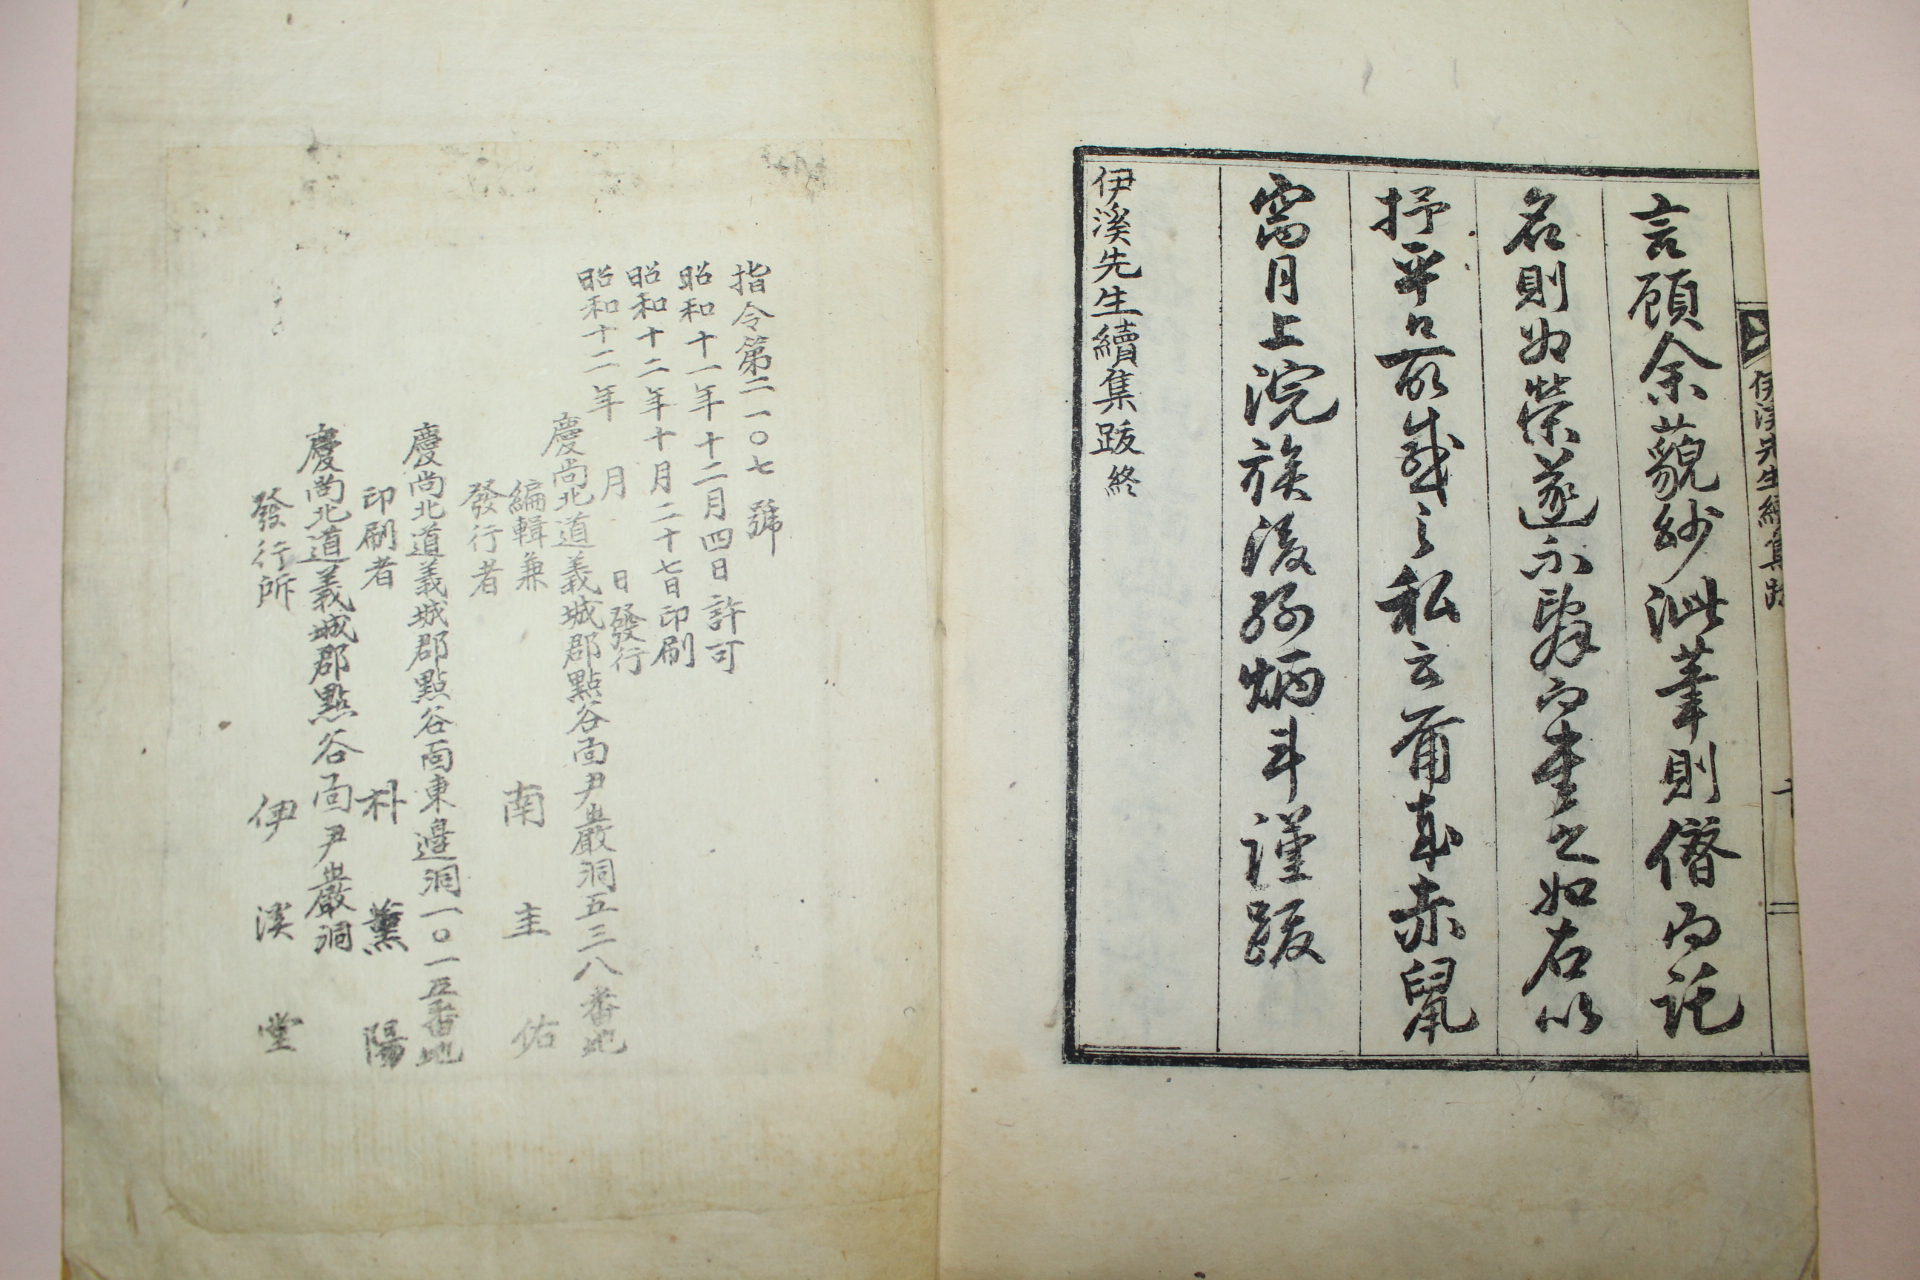 伊溪先生續集跋
言顧余藐紗泚筆則僭而託
名則爲榮遂不辭而書之如右以
抒平日景感之私云爾歲赤鼠
窩月上浣族後孫炳斗謹跋
伊溪先生續集跋終
指令第二一〇七號
昭和十一年十二月四日許可
昭和十二年十月二十七日印刷
昭和十二年 月 日發行
慶尚北道義城郡點谷面尹巖洞五三八番地
編輯兼
發行者 南圭佑
慶尚北道義城郡點谷面東邊洞一〇一五番地
印刷者 朴薰陽
慶尚北道義城郡點谷面尹巖洞
發行所 伊溪堂